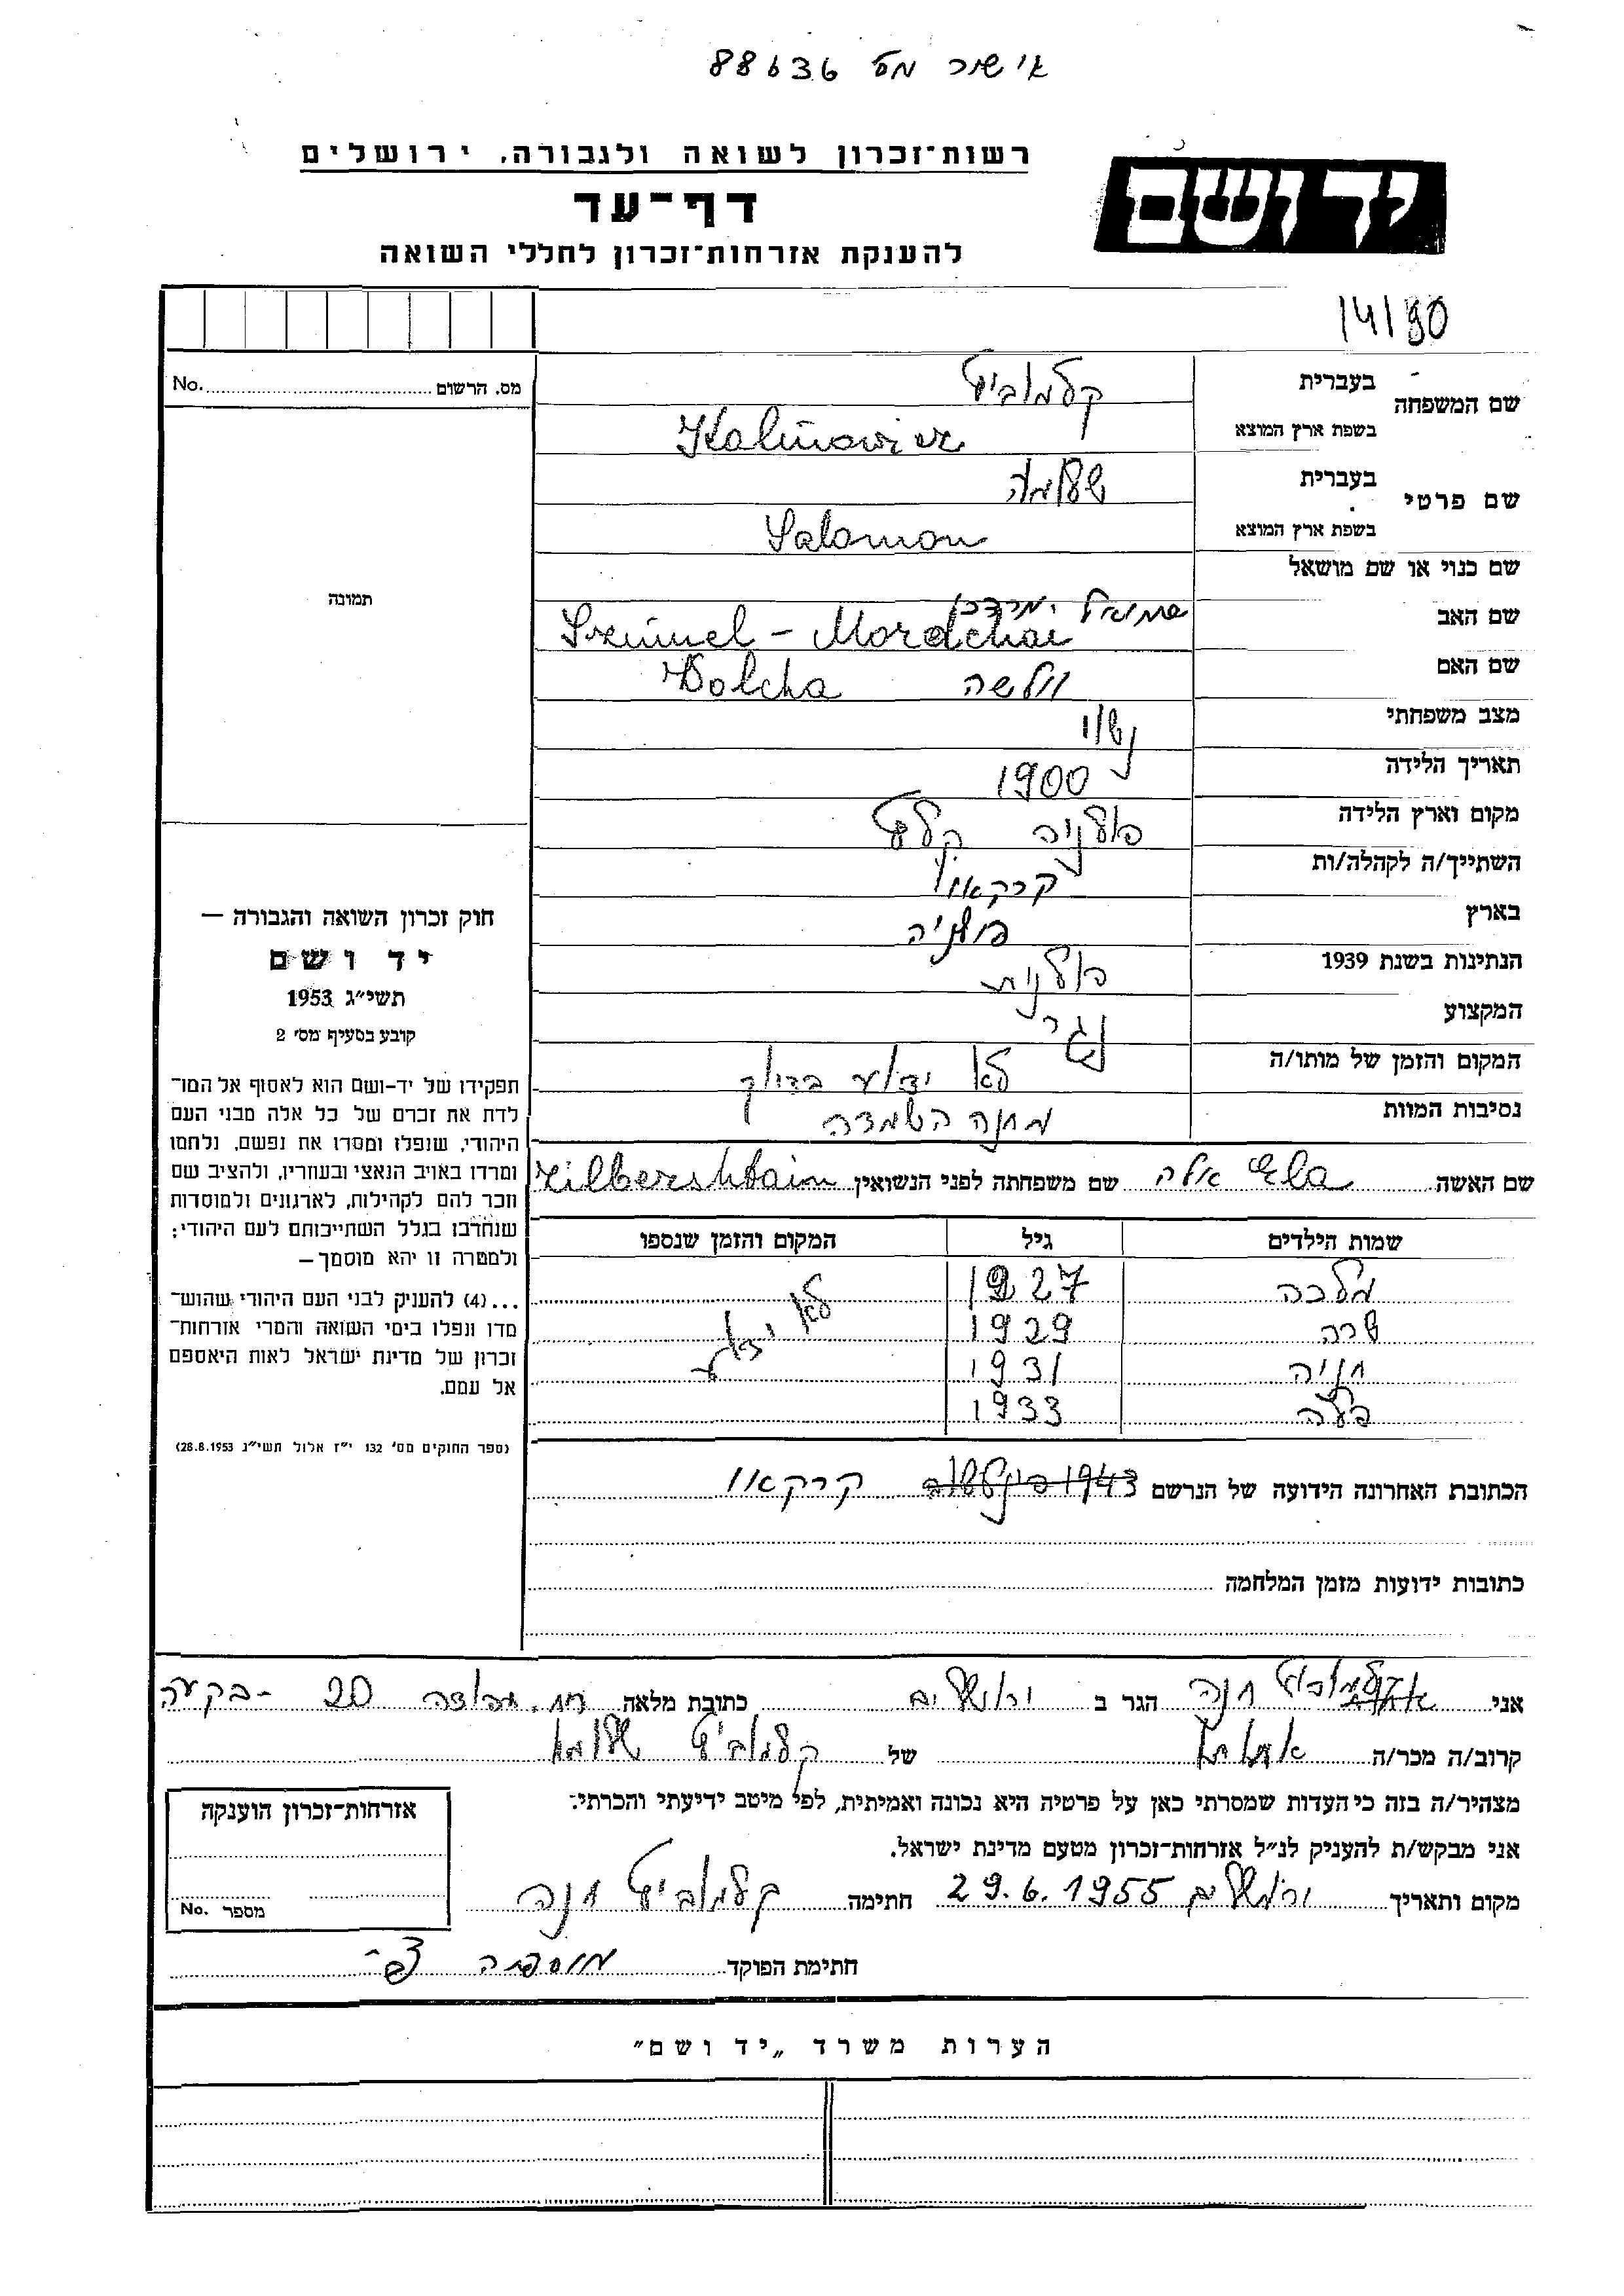 אישור מס 88636
רשות־זכרון לשואה ולגבורה, ירושלים
יד ושם
דף־עד
להענקת אזרחות־זכרון לחללי השואה
14/90
מס. הרשום No.
תמונה
שם המשפחה
בעברית
בשפת ארץ המוצא Kalinowicz
שם פרטי
בעברית שלמה
בשפת ארץ המוצא Salomon
שם כנוי או שם מושאל
שם האב שמואל מרדכי
Szmmel - Mordchai
שם האם Wolcha
מצב משפחתי נשוי
תאריך הלידה 1900
מקום וארץ הלידה פולניה
השתייך/ה לקהלה/ות קרקאוו
בארץ פולניה
הנתינות בשנת 1939 פולנית
המקצוע נגר
המקום והזמן של מותו/ה לא ידוע בדיוק
נסיבות המוות מחנה השמדה
שם האשה אלה שם משפחתה לפני הנשואין Zilbershtain
שמות הילדים גיל המקום והזמן שנספו
מלכה 1927 לא ידוע
שרה 1929
חניה 1931
בלה 1933
הכתובת האחרונה הידועה של הנרשם 1943 קרקאוו
כתובות ידועות מזמן המלחמה
חוק זכרון השואה והגבורה —
יד ושם
תשי״ג 1953
קובע בסעיף מס׳ 2
תפקידו של יד-ושם הוא לאסוף אל המו־
לדת את זכרם של כל אלה מבני העם
היהודי, שנפלו ומסרו את נפשם, נלחמו
ומרדו באויב הנאצי ובעוזריו, ולהציב שם
וזכר להם לקהילות, לארגונים ולמוסדות
שנחרבו בגלל השתייכותם לעם היהודי;
ולמטרה זו יהא מוסמך—
...(4) להעניק לבני העם היהודי שהוש־
מדו ונפלו בימי השואה והמרי אזרחות־
זכרון של מדינת ישראל לאות היאספם
אל עמם.
(ספר החוקים מס׳ 132 י״ז אלול תשי״ג 28.8.1953)
אני חנה הגר ב ירושלים כתובת מלאה 20 - בקעה
קרוב/ה מכר/ה של שלמה
מצהיר/ה בזה כי העדות שמסרתי כאן על פרטיה היא נכונה ואמיתית, לפי מיטב ידיעתי והכרתי.
אני מבקש/ת להעניק לנ״ל אזרחות־זכרון מטעם מדינת ישראל.
מקום ותאריך ירושלים 29.6.1955 חתימה חנה
חתימת הפוקד
אזרחות־זכרון הוענקה
מספר No.
הערות משרד „יד ושם״